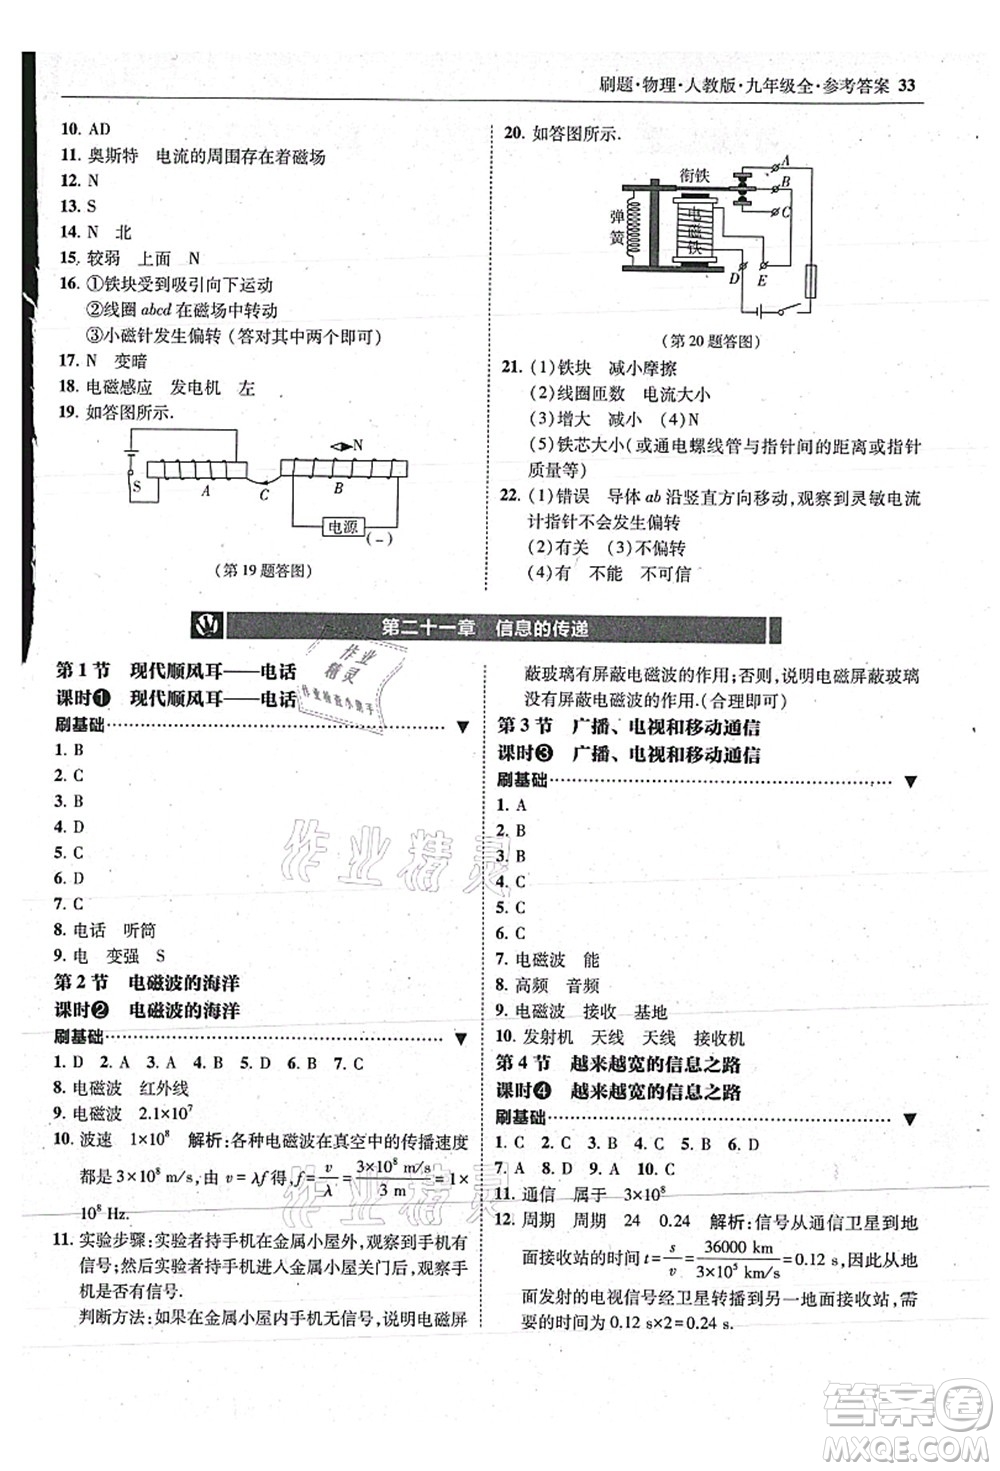 刷题·物理·人教版·九年级全·参考答案 33
10. AD
11. 奥斯特 电流的周围存在着磁场
12. N
13. S
14. N 北
15. 较弱 上面 N
16. ①铁块受到吸引向下运动
②线圈 abcd 在磁场中转动
③小磁针发生偏转(答对其中两个即可)
17. N 变暗
18. 电磁感应 发电机 左
19. 如答图所示.
N
S
A
C
B
电源
(-)
(第19题答图)
20. 如答图所示.
衔铁
弹簧
电磁铁
A
B
C
D
E
(第20题答图)
21. (1)铁块 减小摩擦
(2)线圈匝数 电流大小
(3)增大 减小 (4)N
(5)铁芯大小(或通电螺线管与指针间的距离或指针
质量等)
22. (1)错误 导体 ab 沿竖直方向移动,观察到灵敏电流
计指针不会发生偏转
(2)有关 (3)不偏转
(4)有 不能 不可信
第二十一章 信息的传递
第1节 现代顺风耳——电话
课时❶ 现代顺风耳——电话
刷基础
1. B
2. C
3. B
4. D
5. C
6. D
7. C
8. 电话 听筒
9. 电 变强 S
第2节 电磁波的海洋
课时❷ 电磁波的海洋
刷基础
1. D 2. A 3. A 4. A 5. C 6. D 7. C
8. 电磁波 红外线
9. 电磁波 2.1×10⁷
10. 波速 1×10⁸ 解析:各种电磁波在真空中的传播速度
都是 3×10⁸ m/s,由 v=λf 得,f=v/λ=3×10⁸ m/s / 3 m=1×
10⁸ Hz.
11. 实验步骤:实验者持手机在金属小屋外,观察手机有
信号;然后实验者持手机进入金属小屋关门后,观察手
机是否有信号.
判断方法:如果在金属小屋内手机无信号,说明金属屏
蔽玻璃有屏蔽电磁波的作用;否则,说明金属屏蔽玻璃
没有屏蔽电磁波的作用.(合理即可)
第3节 广播、电视和移动通信
课时❸ 广播、电视和移动通信
刷基础
1. A
2. B
3. B
4. C
5. C
6. C
7. 电磁波 能
8. 高频 音频
9. 电磁波 接收 基地
10. 发射机 天线 天线 接收机
第4节 越来越宽的信息之路
课时❹ 越来越宽的信息之路
刷基础
1. C 2. C 3. B 4. C 5. B 6. D
7. A 8. D 9. C 10. C
11. 通信 属于 3×10⁸
12. 周期 周期 24 0.24 解析:信号从通信卫星到地
面接收站的时间 t=s/v=36000 km / 3×10⁵ km/s=0.12 s,因此从地
面发射的电视信号经卫星转播到另一地面接收站,需
要的时间为 0.12 s×2=0.24 s.
作业精灵
作业检查小帮手
作业精灵
作业精灵
答案圈
MXQE.COM